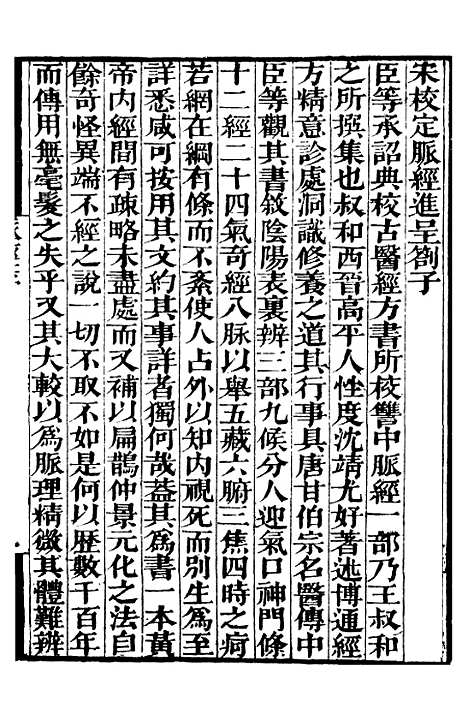 宋校定脈經進呈劄子
臣等承詔典校古醫經方書所校讐中脈經一部乃王叔和
之所撰集也叔和西晉高平人性度沈靖尤好著述博通經
方精意診處洞識修養之道其行事具唐甘伯宗名醫傳中
臣等觀其書敘陰陽表裏辨三部九候分人迎氣口神門條
十二經二十四氣奇經八脉以舉五藏六腑三焦四時之痾
若網在綱有條而不紊使人占外以知内視死而别生爲至
詳悉咸可按用其文約其事詳者獨何哉葢其爲書一本黄
帝内經間有疎略未盡處而又補以扁鵲仲景元化之法自
餘奇怪異端不經之說一切不取不如是何以歴數千百年
而傳用無毫髮之失乎又其大較以爲脈理精微其體難辨